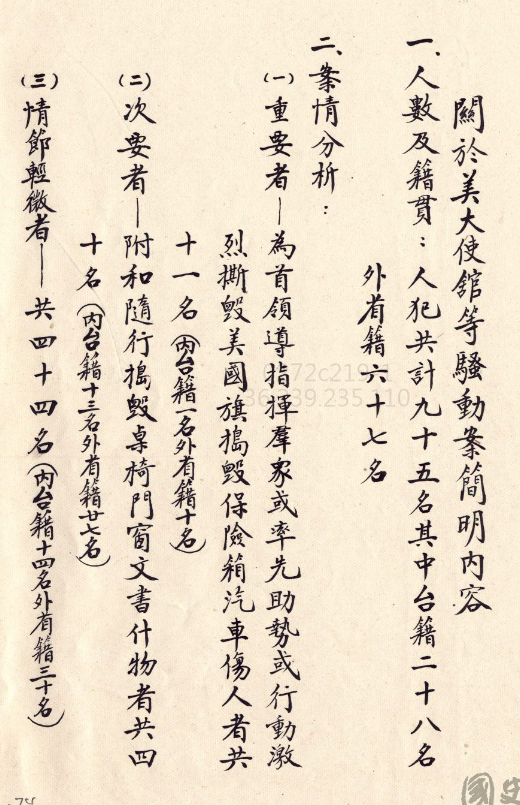 關於美大使舘等騷動案簡明內容
一、人數及籍貫：人犯共計九十五名其中台籍二十八名
外省籍六十七名
二、案情分析：
(一)重要者—為首領導指揮羣眾或率先助勢或行動激
烈撕毀美國旗搗毀保險箱汽車傷人者共
十一名(內台籍一名外省籍十名)
(二)次要者—附和隨行搗毀桌椅門窗文書什物者共四
十名(內台籍十三名外省籍廿七名)
(三)情節輕微者—共四十四名(內台籍十四名外省籍三十名)
國史